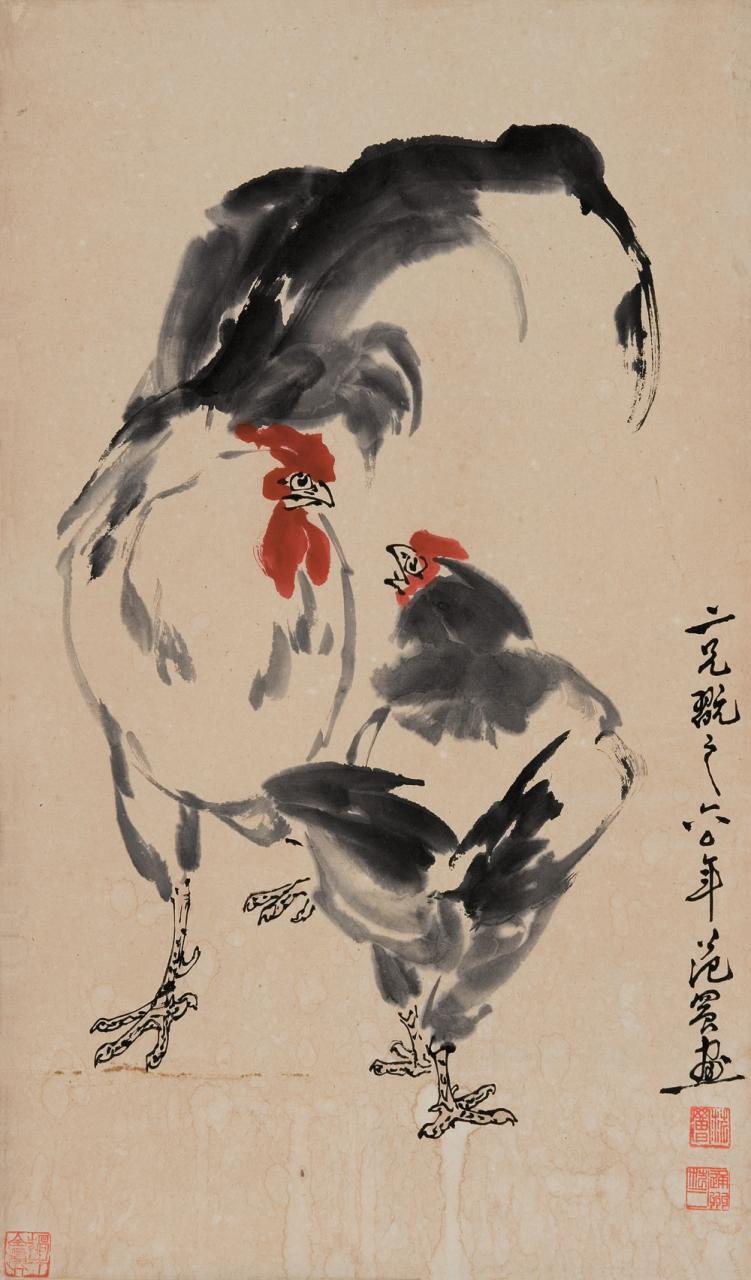 二兄翫之六〇年范曾画